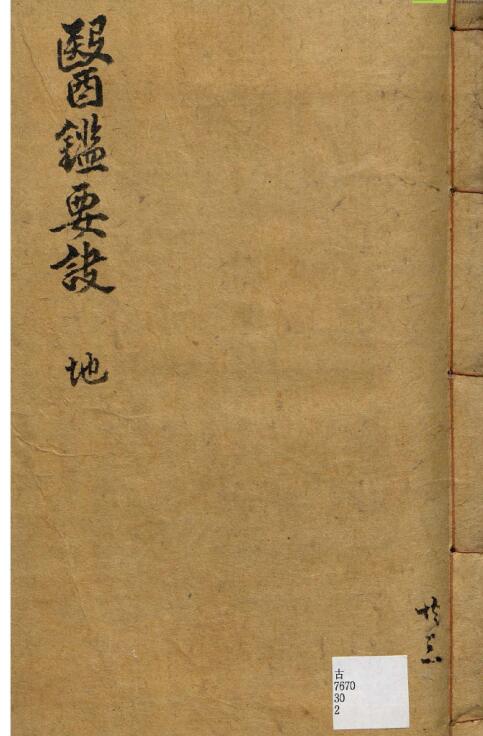 醫鑑要訣 地
共三
古
7670
30
2